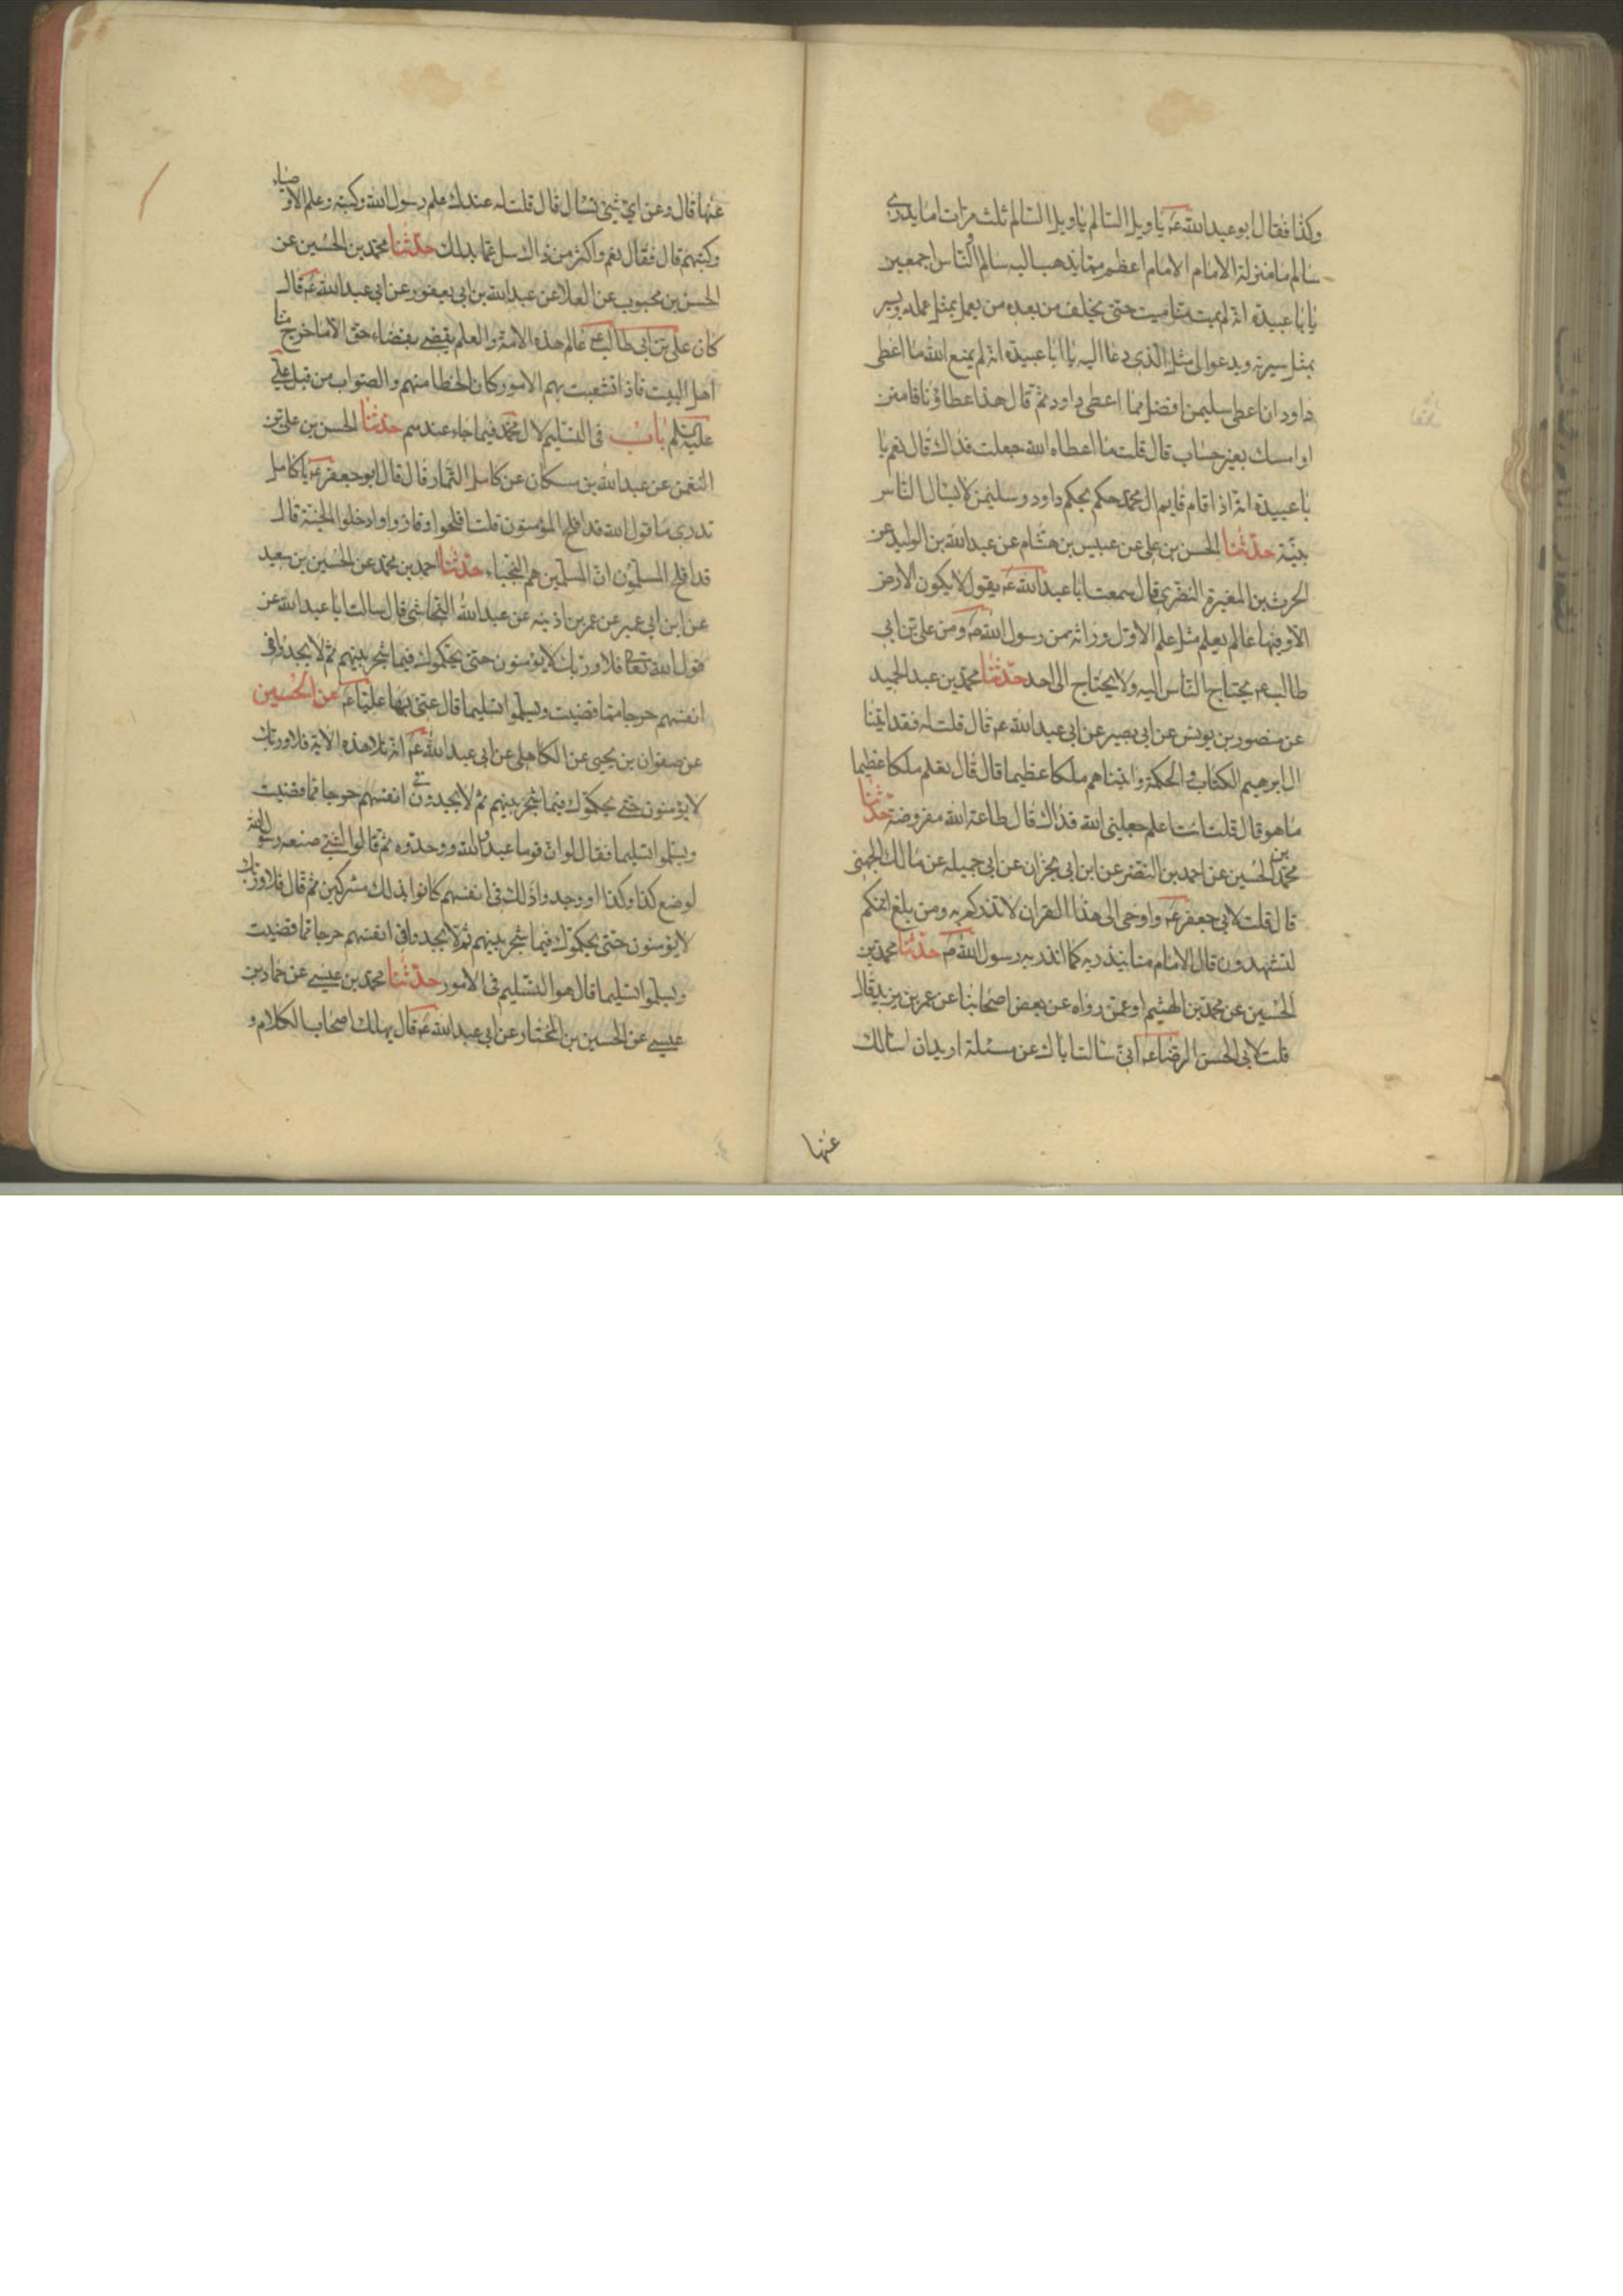 وكذا فقال ابو عبد الله عـ يا ويل السالم يا ويل السالم ثلث مرات اما يدرى
سالم ما منزلة الامام الامام اعظم مما يذهب اليه سالم و الناس اجمعين
يا با عبيدة انه لم يمت منا ميت حتى يخلف من بعده من يعمل بمثل عمله ويسير
بمثل سيرته ويدعوا لى مثل الذى دعا اليه يا ابا عبيدة انه لم يمنع الله ما اعطى
داود ان اعطى سليمن افضل مما اعطى داود ثم قال هذا عطاؤنا فامنن
او امسك بغير حساب قال قلت ما اعطاه الله جعلت فداك قال نعم يا
با عبيدة انه اذا قام قايم ال محمد حكم بحكم داود وسليمن لا يسال الناس
بينة حدثنا الحسن بن على عن عبيس بن هشام عن عبد الله بن الوليد عن
الحرث بن المغيرة النضرى قال سمعت ابا عبد الله عـ يقول لا يكون الارض
الا وفيها عالم يعلم مثل علم الاول وراثة من رسول الله ص ومن على بن ابى
طالب عـ يحتاج الناس اليه ولا يحتاج الى احد حدثنا محمد بن عبد الحميد
عن منصور بن يونس عن ابى بصير عن ابى عبد الله عـ قال قلت له فقد اتينا
ال ابرهيم الكتاب و الحكمة واتيناهم ملكا عظيما قال قال تعلم ملكا عظيما
ما هو قال قلت انت اعلم جعلنى الله فداك قال طاعة الله مفروضة حدثنا
محمد بن الحسين عن احمد بن النضر عن ابن ابى نجران عن ابى جميله عن مالك الجهنى
قال قلت لابى جعفر عـ واوحى الى هذا القران لانذركم به ومن بلغ ائنكم
لتشهدون قال الامام منا ينذر به كما انذر به رسول الله ص حدثنا محمد بن
الحسين عن محمد بن الهيثم او عمن رواه عن بعض اصحابنا عن عمر بن يزيد قال
قلت لابى الحسن الرضا عـ انى سالت اباك عن مسئلة اريدان اسالك
عنها
عنها قال وعن اى شئ تسال قال قلت له عندك علم رسول الله وكتبه وعلم الاوصياء
وكتبهم قال فقال نعم واكثر من ذاك سل عما بدا لك حدثنا محمد بن الحسين عن
الحسن بن محبوب عن العلا عن عبد الله بن ابى يعفور عن ابى عبد الله عـ قال
كان على بن ابى طالب عـ عالم هذه الامة والعلم يقضى بقضاء حق الا ما خرج منا
اهل البيت فاذا تشعبت بهم الامور كان الخطا منهم والصواب من قبل على
عليه السلم باب فى التسليم لال محمد فيما جاء عندهم حدثنا الحسن بن على بن
النعمن عن عبد الله بن مسكان عن كامل التمار قال قال ابو جعفر عـ يا كامل
تدرى ما قول الله قد افلح المؤمنون قلت افلحوا وفازوا وادخلوا الجنة قال
قد افلح المسلمون ان المسلمين هم النجباء حدثنا احمد بن محمد عن الحسين بن سعيد
عن ابن ابى عمير عن عمر بن اذينه عن عبد الله النجاشى قال سالت ابا عبد الله عن
قول الله تعالى فلا وربك لا يؤمنون حتى يحكموك فيما شجر بينهم ثم لا يجدوا فى
انفسهم حرجا مما قضيت ويسلموا تسليما قال عنى بها عليا عـ عن الحسين
عن صفوان بن يحيى عن الكاهلى عن ابى عبد الله عـ انه تلا هذه الاية فلا وربك
لا يؤمنون حتى يحكموك فيما شجر بينهم ثم لا يجدون فى انفسهم حرجا مما قضيت
ويسلموا تسليما فقال لو ان قوما عبدوا الله ووحدوه ثم قالوا لشئ صنعه رسول الله
لو ضع كذا وكذا او وجدوا ذلك فى انفسهم كانوا بذلك مشركين ثم قال فلا وربك
لا يؤمنون حتى يحكموك فيما شجر بينهم ثم لا يجدوا فى انفسهم حرجا مما قضيت
ويسلموا تسليما قال هو التسليم فى الامور حدثنا محمد بن عيسى عن حماد بن
عيسى عن الحسين بن المختار عن ابى عبد الله عـ قال يهلك اصحاب الكلام و